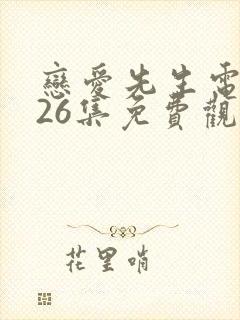 戀愛先生電
26集免費觀
花里哨